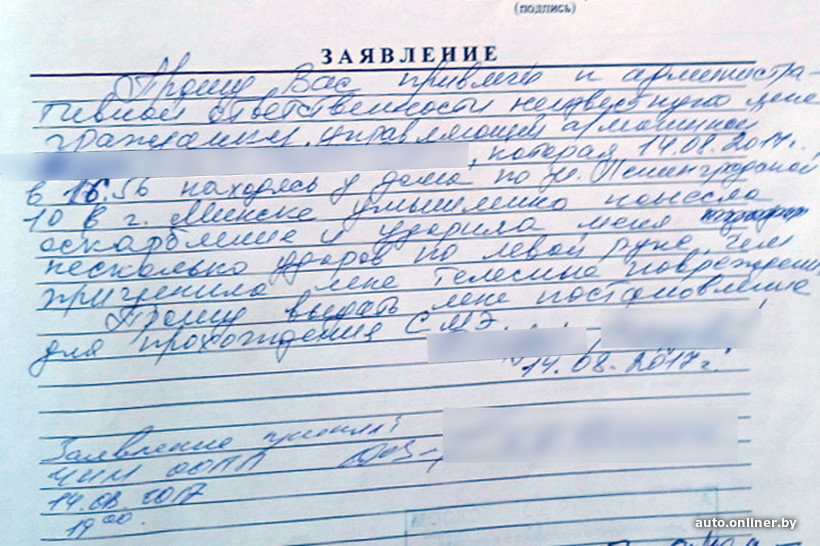 (подпись)
ЗАЯВЛЕНИЕ
Прошу Вас привлечь к администра-
тивной ответственности неизвестную мне
гражданку, управляющей автомашиной
, которая 14.08.2017г.,
в 16.56 находясь у дома по ул. Ленинградской
10 в г. Минске умышленно нанесла
оскорбление и ударила меня
несколько ударов по левой руке, чем
причинила мне телесные повреждения
Прошу выдать мне постановление
для прохождения СМЭ.
14.08.2017г.
Заявление принял:
14.08.2017
19 00.
auto.onliner.by